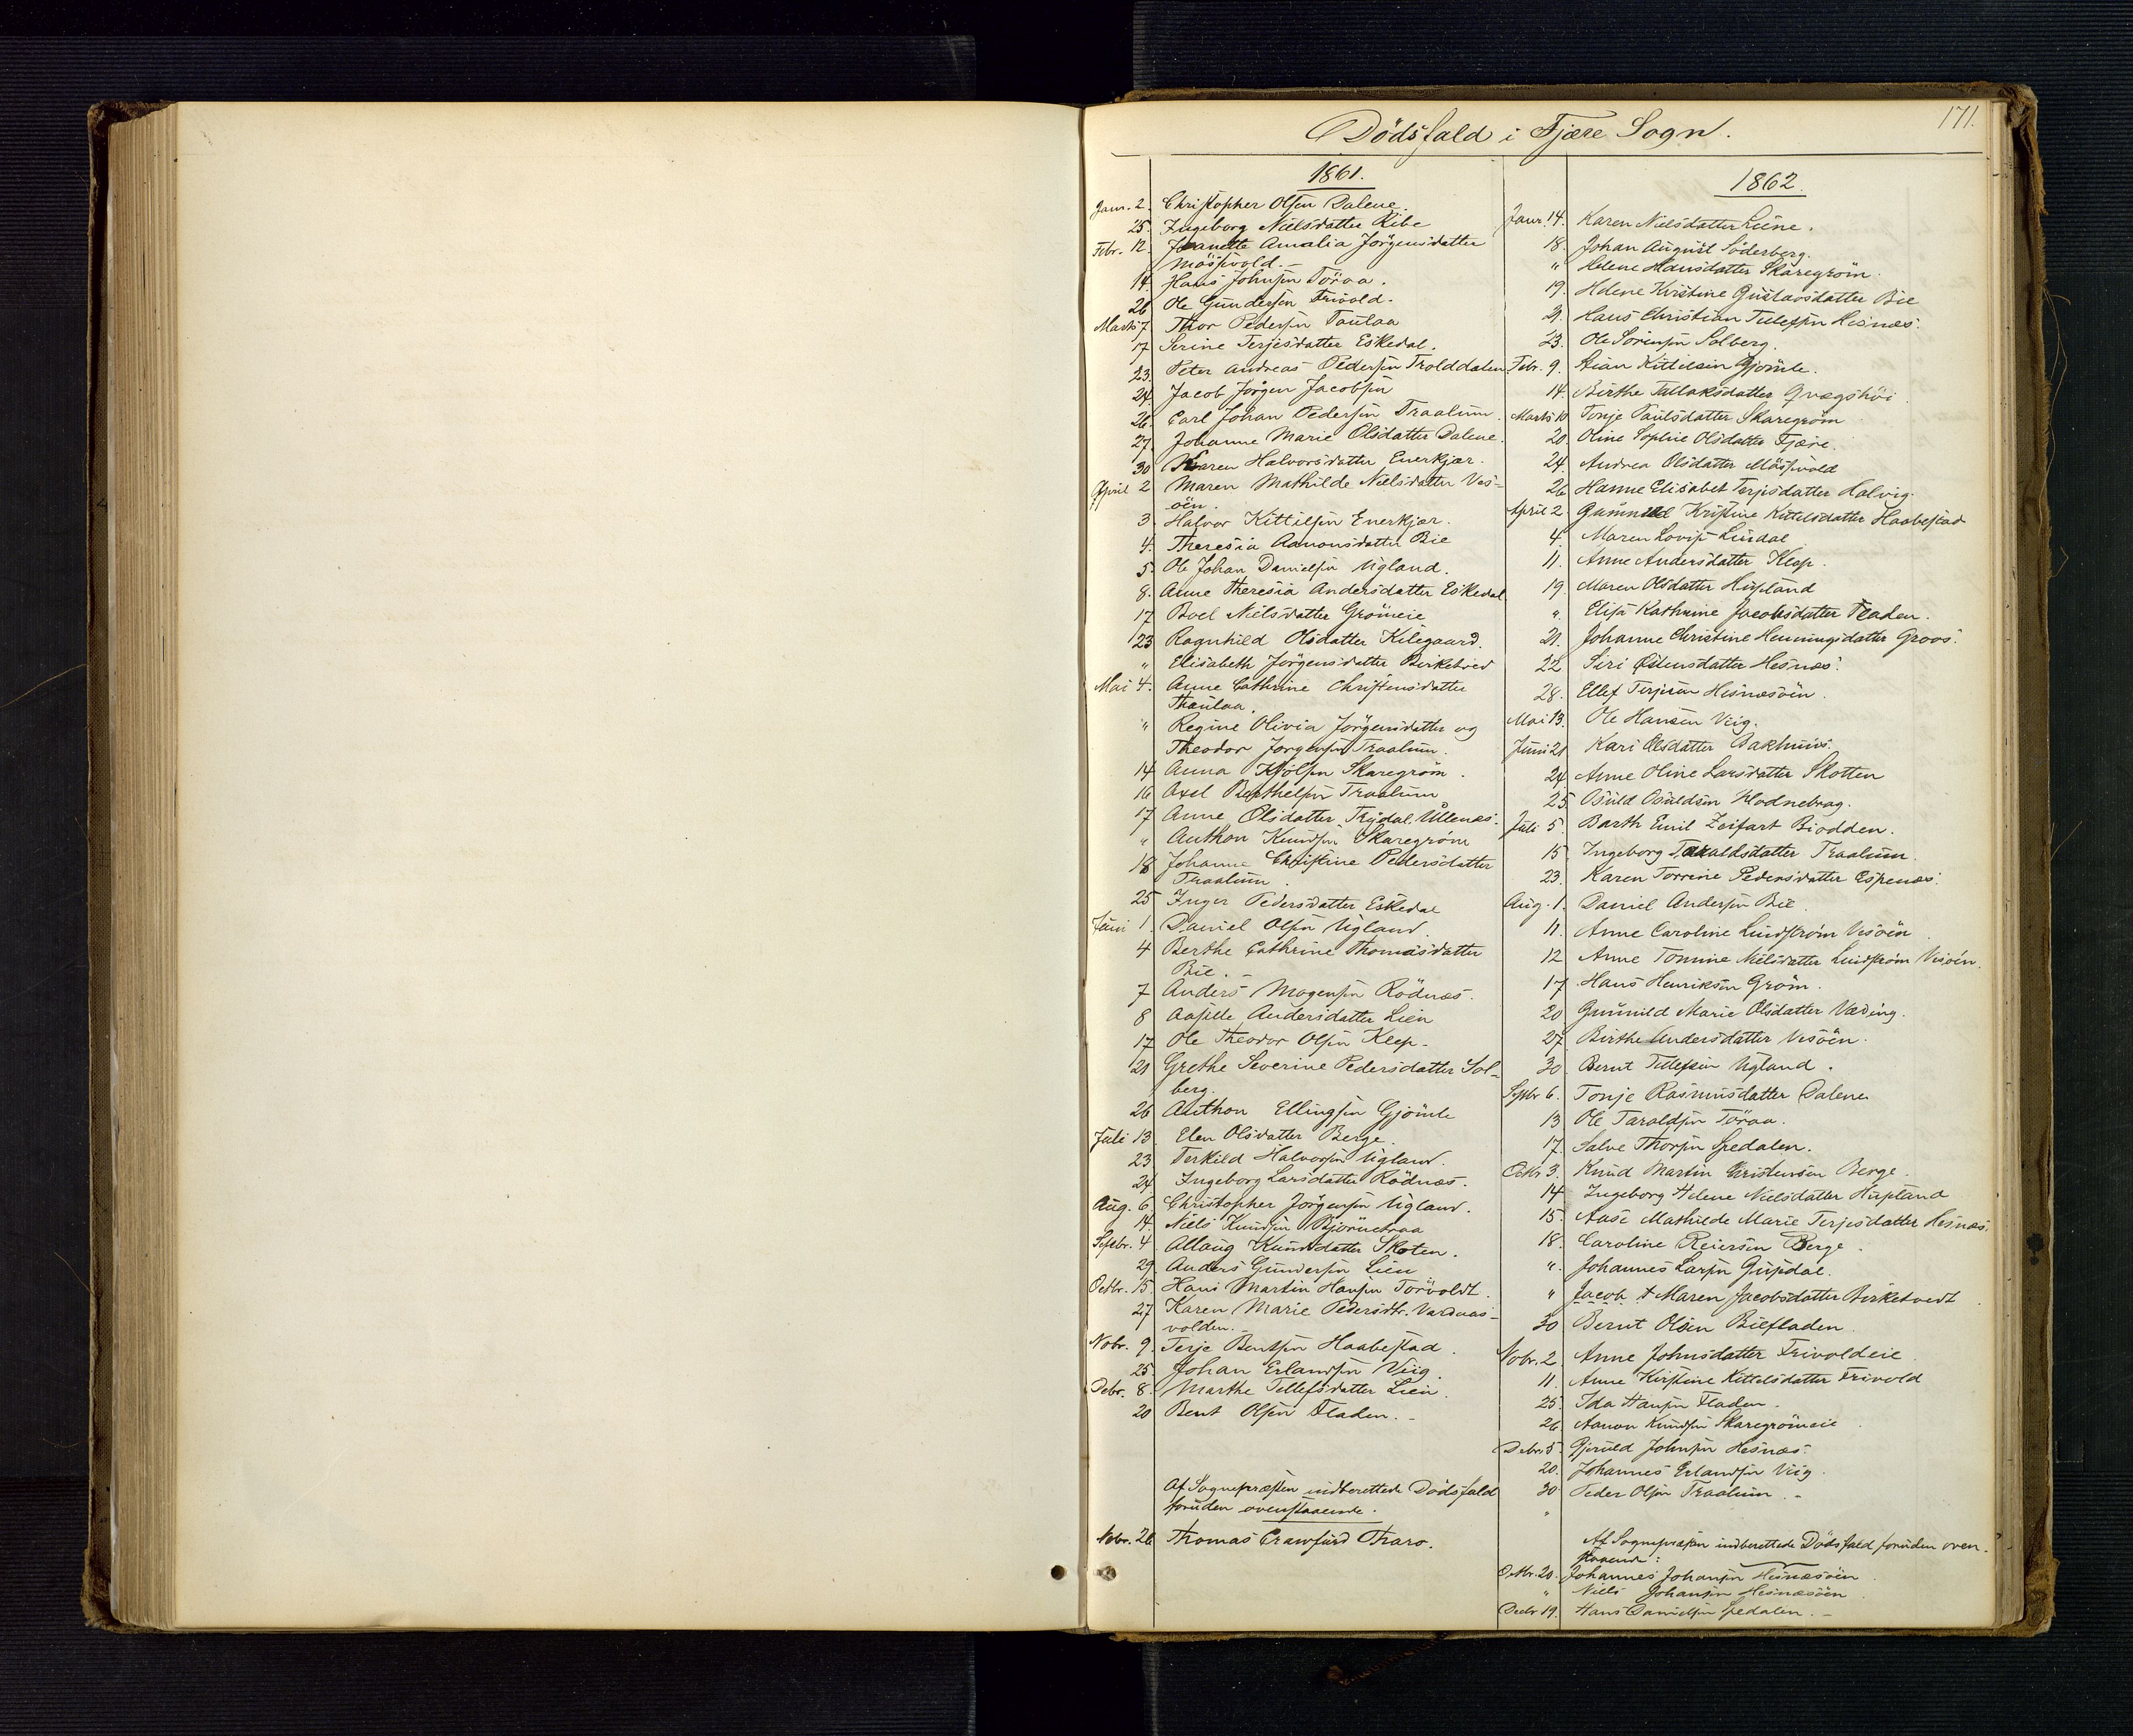 171.
Dödsfald i Fjære Sogn.
1861.
Janr. 2. Christopher Olsen Dalene.
25. Ingeborg Nielsdatter Ribe
Febr. 12. Jeanette Amalia Jörgensdatter
Mösfvold.-
14. Hans Johnsen Töraa.
26 Ole Gundersen Frivold.
Marts 7. Thor Pedersen Taulaa
17 Serine Terjesdatter Eskedal.
23. Peter Andreas Pedersen Trolddalen
24. Jacob Jörgen Jacobsen
26. Carl Johan Pedersen Traalum.
27. Johanne Marie Olsdatter Dalene.
30 Karen Halvorsdatter Enerkjær.
April 2 Maren Mathilde Nielsdatter Ves-
öen.
3. Halvor Kittilsen Enerkjær.
4. Theresia Aanonsdatter Bie
5. Ole Johan Danielsen Ugland.
8. Anne Theresia Andersdatter Eskedal
17 Boel Nielsdatter Grömeie
23 Ragnhild Olsdatter Kilegaard.
" Elisabeth Jörgensdatter Birketved
Mai 4. Anne Cathrine Christensdatter
Thaulaa.
" Regine Olivia Jörgensdatter og
Theodor Jörgensen Traalum.
14 Anna Skaregröm.
16 Axel Berthelsen Traalum
17 Anne Olsdatter Ullenes.
" Anthon Knudsen Skaregröm
18 Johanne Christine Pedersdatter
Traalum.
25 Inger Pedersdatter Eskedal
Juni 1. Daniel Olsen Ugland.
4 Berthe Cathrine Thomasdatter
Bie.-
7 Anders Mogensen Rödnæs.
8 Aasille Andersdatter Lien
17 Ole Theodor Olsen Klep.
21 Grethe Severine Pedersdatter Sol-
berg.
26 Anthon Ellingsen Gjömle
Juli 13. Elen Olsdatter Berge.
23 Terkild Halvorsen Ugland.
24 Ingeborg Larsdatter Rödnæs.
Aug. 6. Christopher Jörgensen Ugland.
14. Niels Knudsen Bjornetraa
Septbr. 4. Allaug Knudsdatter Skoten.
29. Anders Gundersen Lien
Octbr. 15. Hans Martin Hansen Törvoldt.
27 Karen Marie Pedersdtr. Vardaas-
volden.-
Nobr. 9. Terje Bentsen Haabestad.
25. Johan Erlandsen Viig.
Debr. 8. Marthe Tellefsdatter Lien.
20 Bent Olsen Fladen.-
Af Sognepræsten indberettede Dödsfald
foruden ovenstaaende.
Nobr. 26 Thomas Crawfurd Tharo.
1862.
Janr. 14. Karen Nielsdatter Leine.
18. Johan August Söderberg.
" Helene Hansdatter Skaregröm.
19. Helene Kristine Gustavsdatter Bie
21. Hans Christian Tellefsen Hesnæs.
23. Ole Sörensen Solberg.
Febr. 9. Kittelsen Gjömle.
14. Birthe Tallaksdatter
Marts 10 Tonje Paulsdatter Skaregröm
20. Oline Sophie Olsdatter Fjære.
24. Andrea Olsdatter Mösfvold
26 Hanne Elisabet Terjesdatter Holvig.
April 2 Gunnild Kristine Kittelsdatter Haabestad
4. Maren Lovise Lindal
11. Anne Andersdatter Klep.
19. Maren Olsdatter Hisland
". Elise Kathrine Jacobsdatter Fladen.
21. Johanne Christine Henningsdatter Groos.
22 Siri Hesnæs.
28. Ellef Terjesen Hesnæsöen.
Mai 13. Ole Hansen Viig.
Juni 21 Kari Olsdatter Bakhuus.
24. Anne Oline Larsdatter Skotten
25. Osuld Osuldsen Hodnebrog.
Juli 5. Barth Emil Zeifart Biodden.
15. Ingeborg Taraldsdatter Traalum.
23. Karen Torrine Pedersdatter Espenæs.
Aug. 1. Daniel Andersen Bie.
11. Anne Caroline Lindström Vesöen
12 Anne Tomine Nielsdatter Lindström Vesöen.
17. Hans Henriksen Gröm.
20 Gunnild Marie Olsdatter Væding.
27 Birthe Andersdatter Vesöen.
30. Bernt Tellefsen Ugland.
Septbr 6. Tonje Rasmusdatter Dalene
13 Ole Taraldsen Töraa.
17. Salve Thorsen Spedalen.
Octbr. 3. Knud Martin Kristensen Berge.
14 Ingeborg Helene Nielsdatter Hisland
15. Aase Mathilde Marie Terjesdatter Hesnæs.
18. Caroline Reiersen Berge.
". Johannes Larsen Gusdal.
" Jacob & Maren Jacobsdatter Birketvedt
30 Bernt Olsen Biefladen.
Nobr. 2. Anne Johnsdatter Frivoldeie.
11 Anne Kirstine Kittelsdatter Frivold
25. Ida Hansen Fladen.
26 Aanon Knudsen Skaregrömeie.
Debr. 5. Gjeruld Johnsen Hesnæs.
20. Johannes Erlandsen Viig.
30 Peder Olsen Traalum.-
"
Af Sognepræsten indberettede Dödsfald foruden oven-
staaende:
Octbr. 20. Johannes Johansen Hesnæsöen
" Niels Johansen Hesnæsöen
Decbr 19. Hans Danielsen Spedalen.-